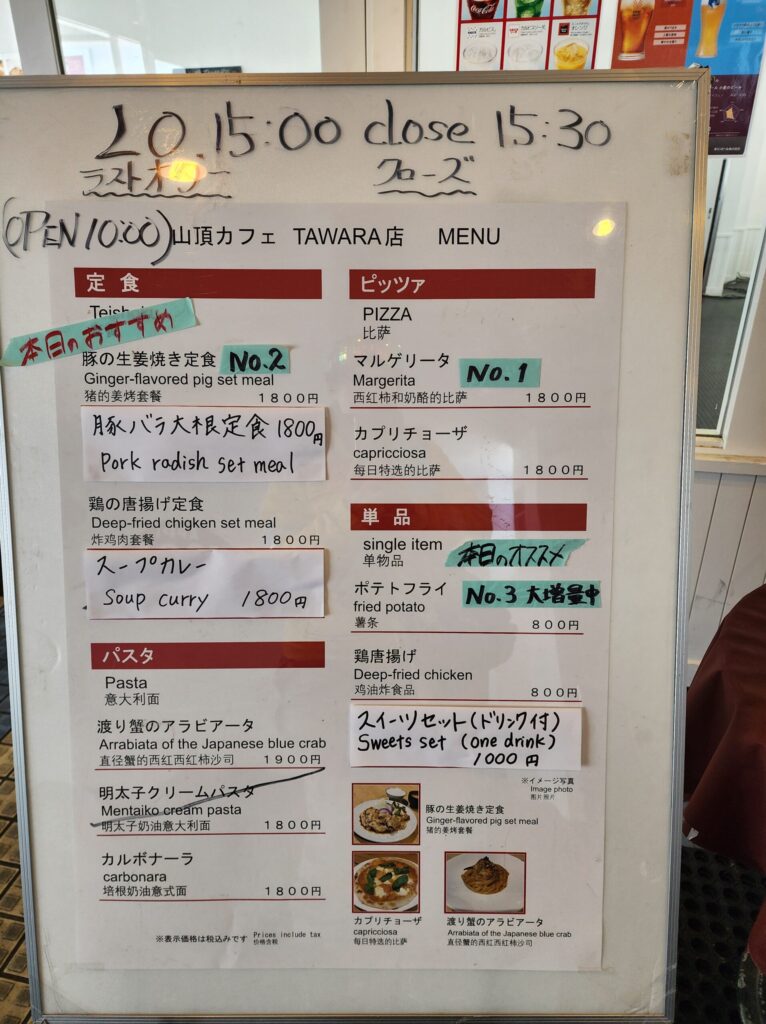 LO.15:00 close 15:30
ラストオーダー クローズ
(OPEN 10:00) 山頂カフェ TAWARA店 MENU
定食
本日のおすすめ
豚の生姜焼き定食 No.2
Ginger-flavored pig set meal
猪的姜烤套餐 1800円
豚バラ大根定食 1800円
Pork radish set meal
鶏の唐揚げ定食
Deep-fried chigken set meal
炸鸡肉套餐 1800円
スープカレー
Soup curry 1800円
パスタ
Pasta
意大利面
渡り蟹のアラビアータ
Arrabiata of the Japanese blue crab
直径蟹的西红西红柿沙司 1900円
明太子クリームパスタ
Mentaiko cream pasta
明太子奶油意大利面 1800円
カルボナーラ
carbonara
培根奶油意式面 1800円
※表示価格は税込みです Prices include tax
价格含税
ピッツァ
PIZZA
比萨
マルゲリータ No.1
Margerita
西红柿和奶酪的比萨 1800円
カプリチョーザ
capricciosa
每日特选的比萨 1800円
単品
single item 本日のオススメ
单物品
ポテトフライ No.3 大増量中
fried potato
薯条 800円
鶏唐揚げ
Deep-fried chicken
鸡油炸食品 800円
スイーツセット(ドリンク付)
Sweets set (one drink)
1000円
※イメージ写真
Image photo
图片照片
豚の生姜焼き定食
Ginger-flavored pig set meal
猪的姜烤套餐
カプリチョーザ
capricciosa
每日特选的比萨
渡り蟹のアラビアータ
Arrabiata of the Japanese blue crab
直径蟹的西红西红柿沙司